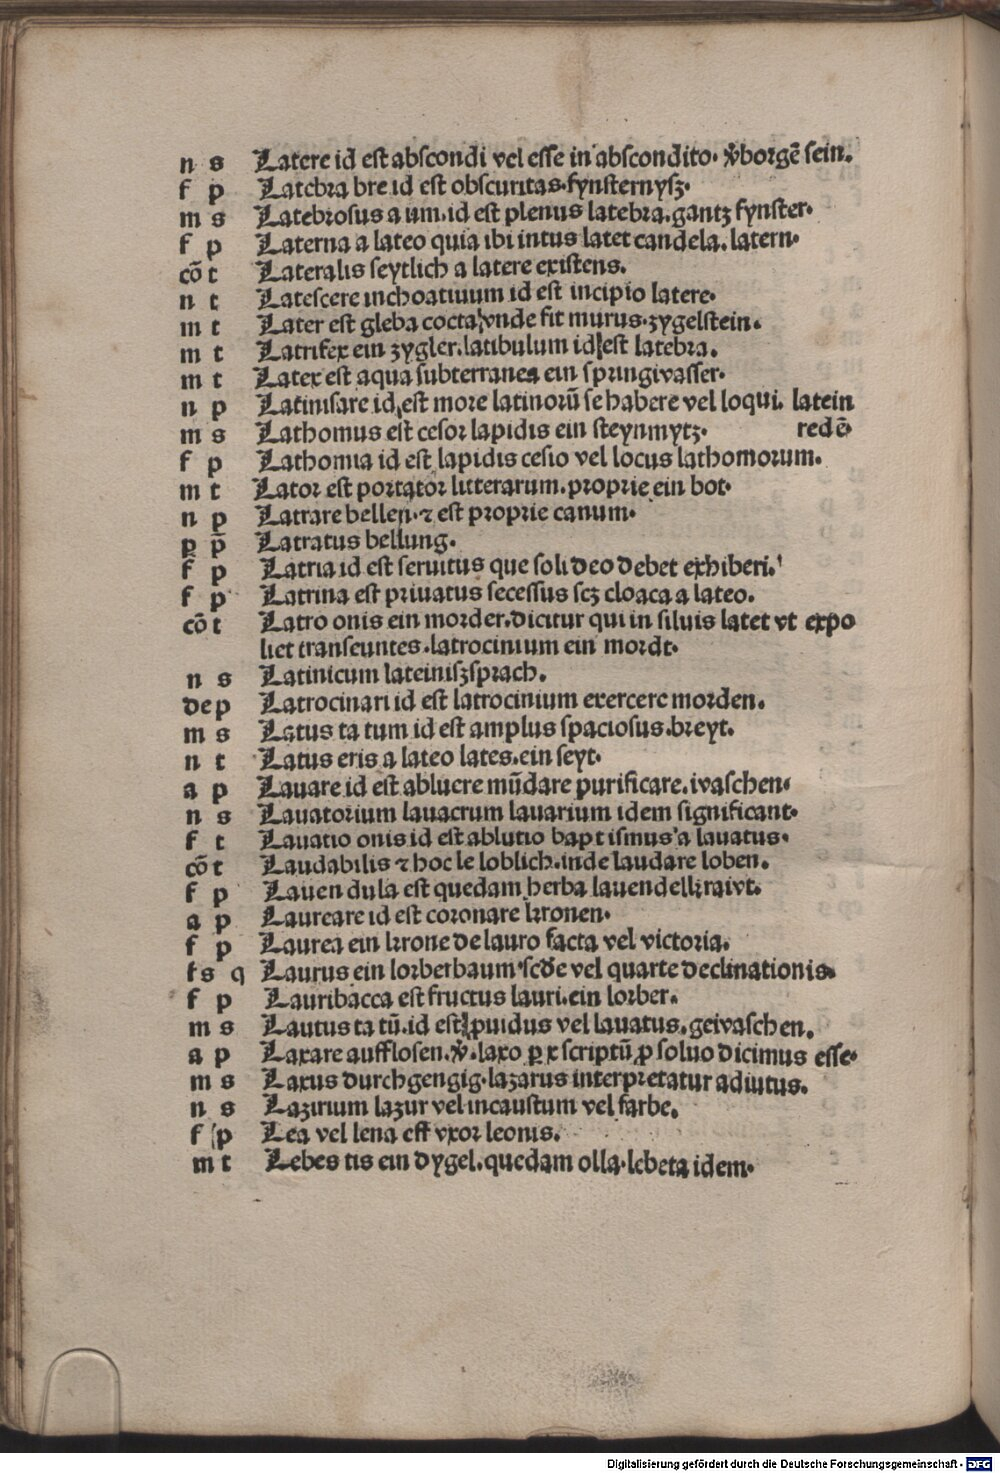 n s Latere id est abscondi vel esse in abscondito· v̾borgē sein.
f p Latebra bre id est obscuritas·fynsternysz·
m s Latebrosus a um.id est plenus latebra.gantz fynster·
f p Laterna a lateo quia ibi intus latet candela.latern·
cō t Lateralis seytlich a latere existens.
n t Latescere inchoatiuum id est incipio latere·
m t Later est gleba cocta vnde fit murus·zygelstein.
m t Latrifex ein zygler.latibulum id est latebra.
m t Latex est aqua subterranea ein springwasser·
n p Latinisare id est more latinorū se habere vel loqui. latein
m s Lathomus est cesor lapidis ein steynmytz· redē·
f p Lathomia id est lapidis cesio vel locus lathomorum·
m t Lator est portator litterarum.proprie ein bot·
n p Latrare bellen·⁊ est proprie canum·
p p̄ Latratus bellung.
f p Latria id est seruitus que soli deo debet exhiberi.
f p Latrina est priuatus secessus scz cloaca a lateo.
cō t Latro onis ein morder.dicitur qui in siluis latet vt expo
liet transeuntes.latrocinium ein mordt·
n s Latinicum lateiniszsprach.
de p Latrocinari id est latrocinium exercere morden.
m s Latus ta tum id est amplus spaciosus.breyt.
n t Latus eris a lateo lates.ein seyt·
a p Lauare id est abluere mūdare purificare.waschen·
n s Lauatorium lauacrum lauarium idem significant·
f t Lauatio onis id est ablutio baptismus a lauatus·
cō t Laudabilis ⁊ hoc le loblich.inde laudare loben.
f p Lauendula est quedam herba lauendelkrawt.
a p Laureare id est coronare kronen·
f p Laurea ein krone de lauro facta vel victoria.
f s q Laurus ein lorberbaum scd̄e vel quarte declinationis.
f p Lauribacca est fructus lauri.ein lorber.
m s Lautus ta tū.id est ꝓuidus vel lauatus.gewaschen.
a p Laxare aufflosen.v̾.laxo ꝑ x scriptū ꝓ soluo dicimus esse·
m s Laxus durchgengig·lazarus interpretatur adiutus.
n s Lazirium lazur vel incaustum vel farbe.
f p Lea vel lena est vxor leonis.
m t Lebes tis ein dygel.quedam olla·lebeta idem·
Digitalisierung gefördert durch die Deutsche Forschungsgemeinschaft - DFG